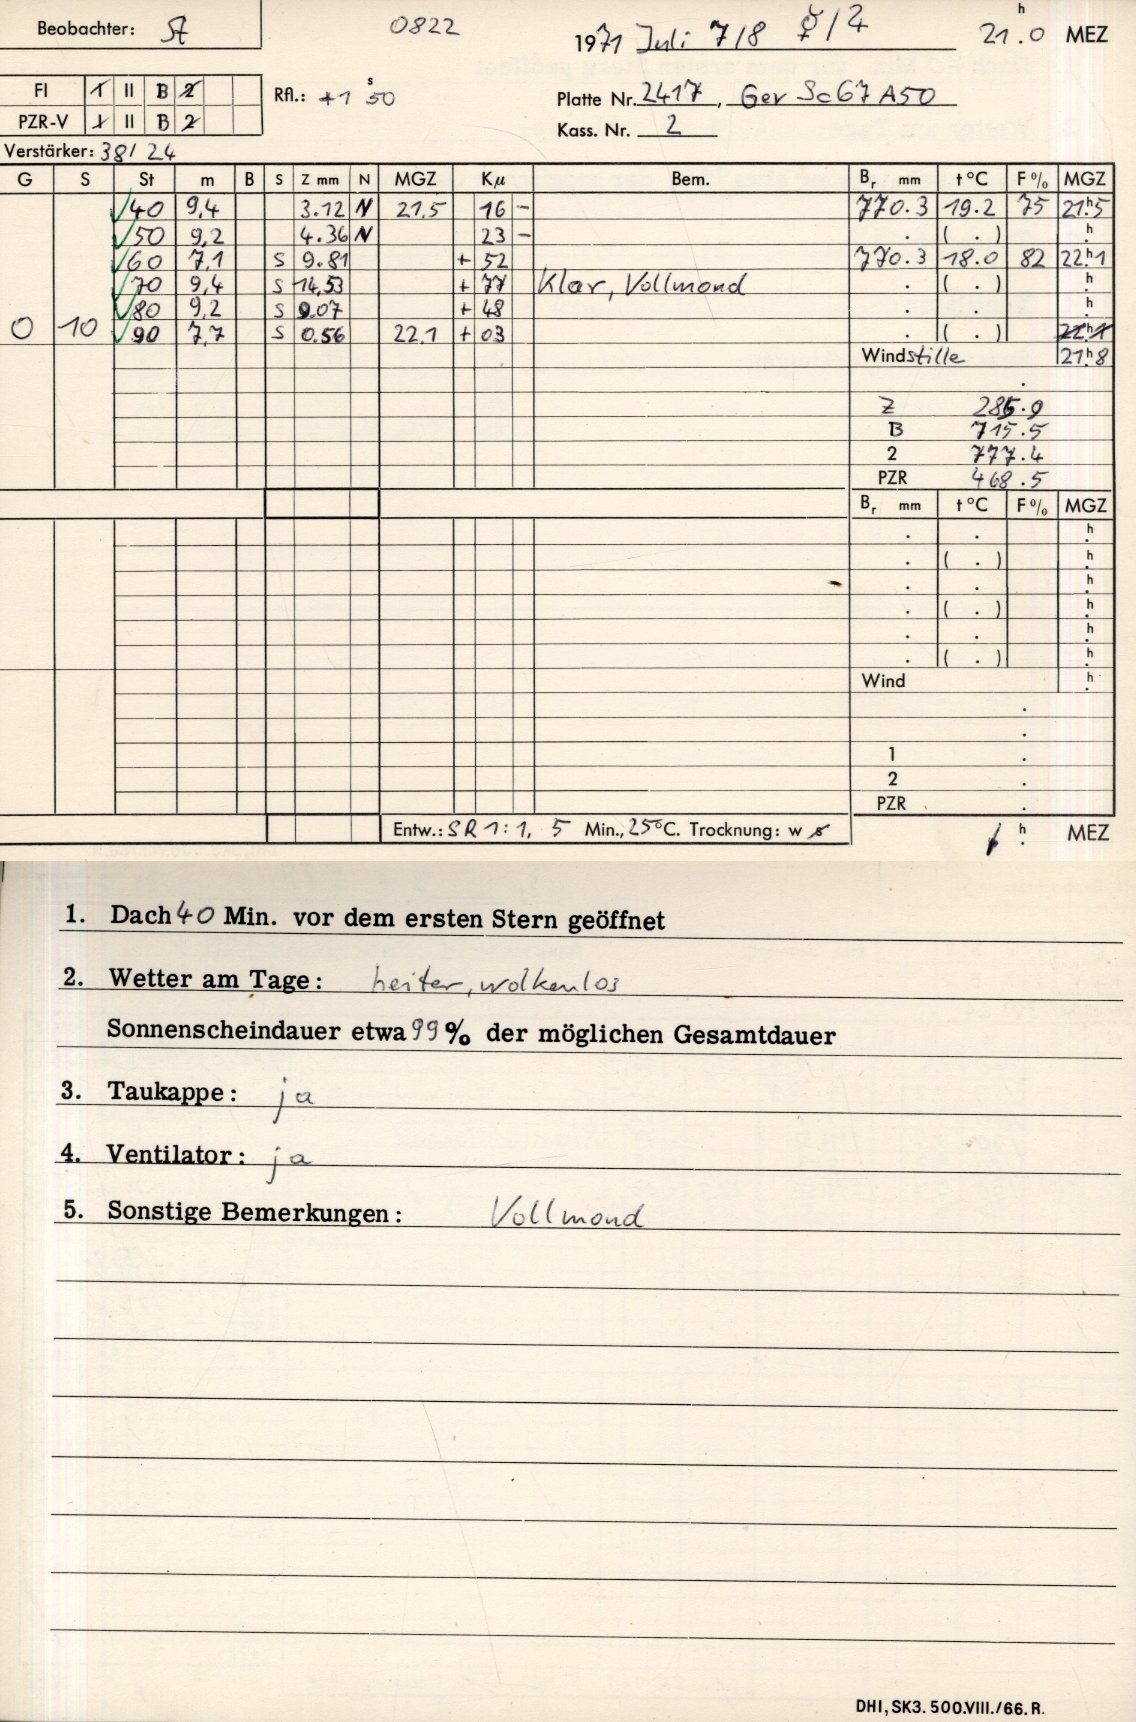 Beobachter: St 0822 1971 Juli 7/8 ☿/♃ 21.ʰ0 MEZ
FI 1 II B 2 Rfl.: +1ˢ50 Platte Nr. 2417, Gev Sc67A50
PZR-V 1 II B 2 Kass. Nr. 2
Verstärker: 38/24
G S St m B S Z mm N MGZ Kμ Bem. Bᵣ mm t°C F% MGZ
√40 9,4 3.12 N 21,5 16 – 770.3 19.2 75 21ʰ5
√50 9,2 4.36 N 23 – . ( . ) ʰ.
√60 7,1 S 9.81 + 52 770.3 18.0 82 22ʰ1
√70 9,4 S 14,53 + 77 Klar, Vollmond . ( . ) ʰ.
√80 9,2 S 9.07 + 48 . . ʰ.
0 10 √90 7,7 S 0.56 22,1 + 03 . ( . ) 22ʰ1
Windstille 21ʰ8
.
Z 285.9
B 715.5
2 777.4
PZR 468.5
Bᵣ mm t°C F% MGZ
. . ʰ.
. ( . ) ʰ.
. . ʰ.
. ( . ) ʰ.
. . ʰ.
. ( . ) ʰ.
Wind ʰ.
.
.
1 .
2 .
PZR .
Entw.: SR 1:1, 5 Min., 25°C. Trocknung: w s ʰ. MEZ
1. Dach 40 Min. vor dem ersten Stern geöffnet
2. Wetter am Tage: heiter, wolkenlos
Sonnenscheindauer etwa 99% der möglichen Gesamtdauer
3. Taukappe: ja
4. Ventilator: ja
5. Sonstige Bemerkungen: Vollmond
DHI, SK3. 500.VIII./66. R.